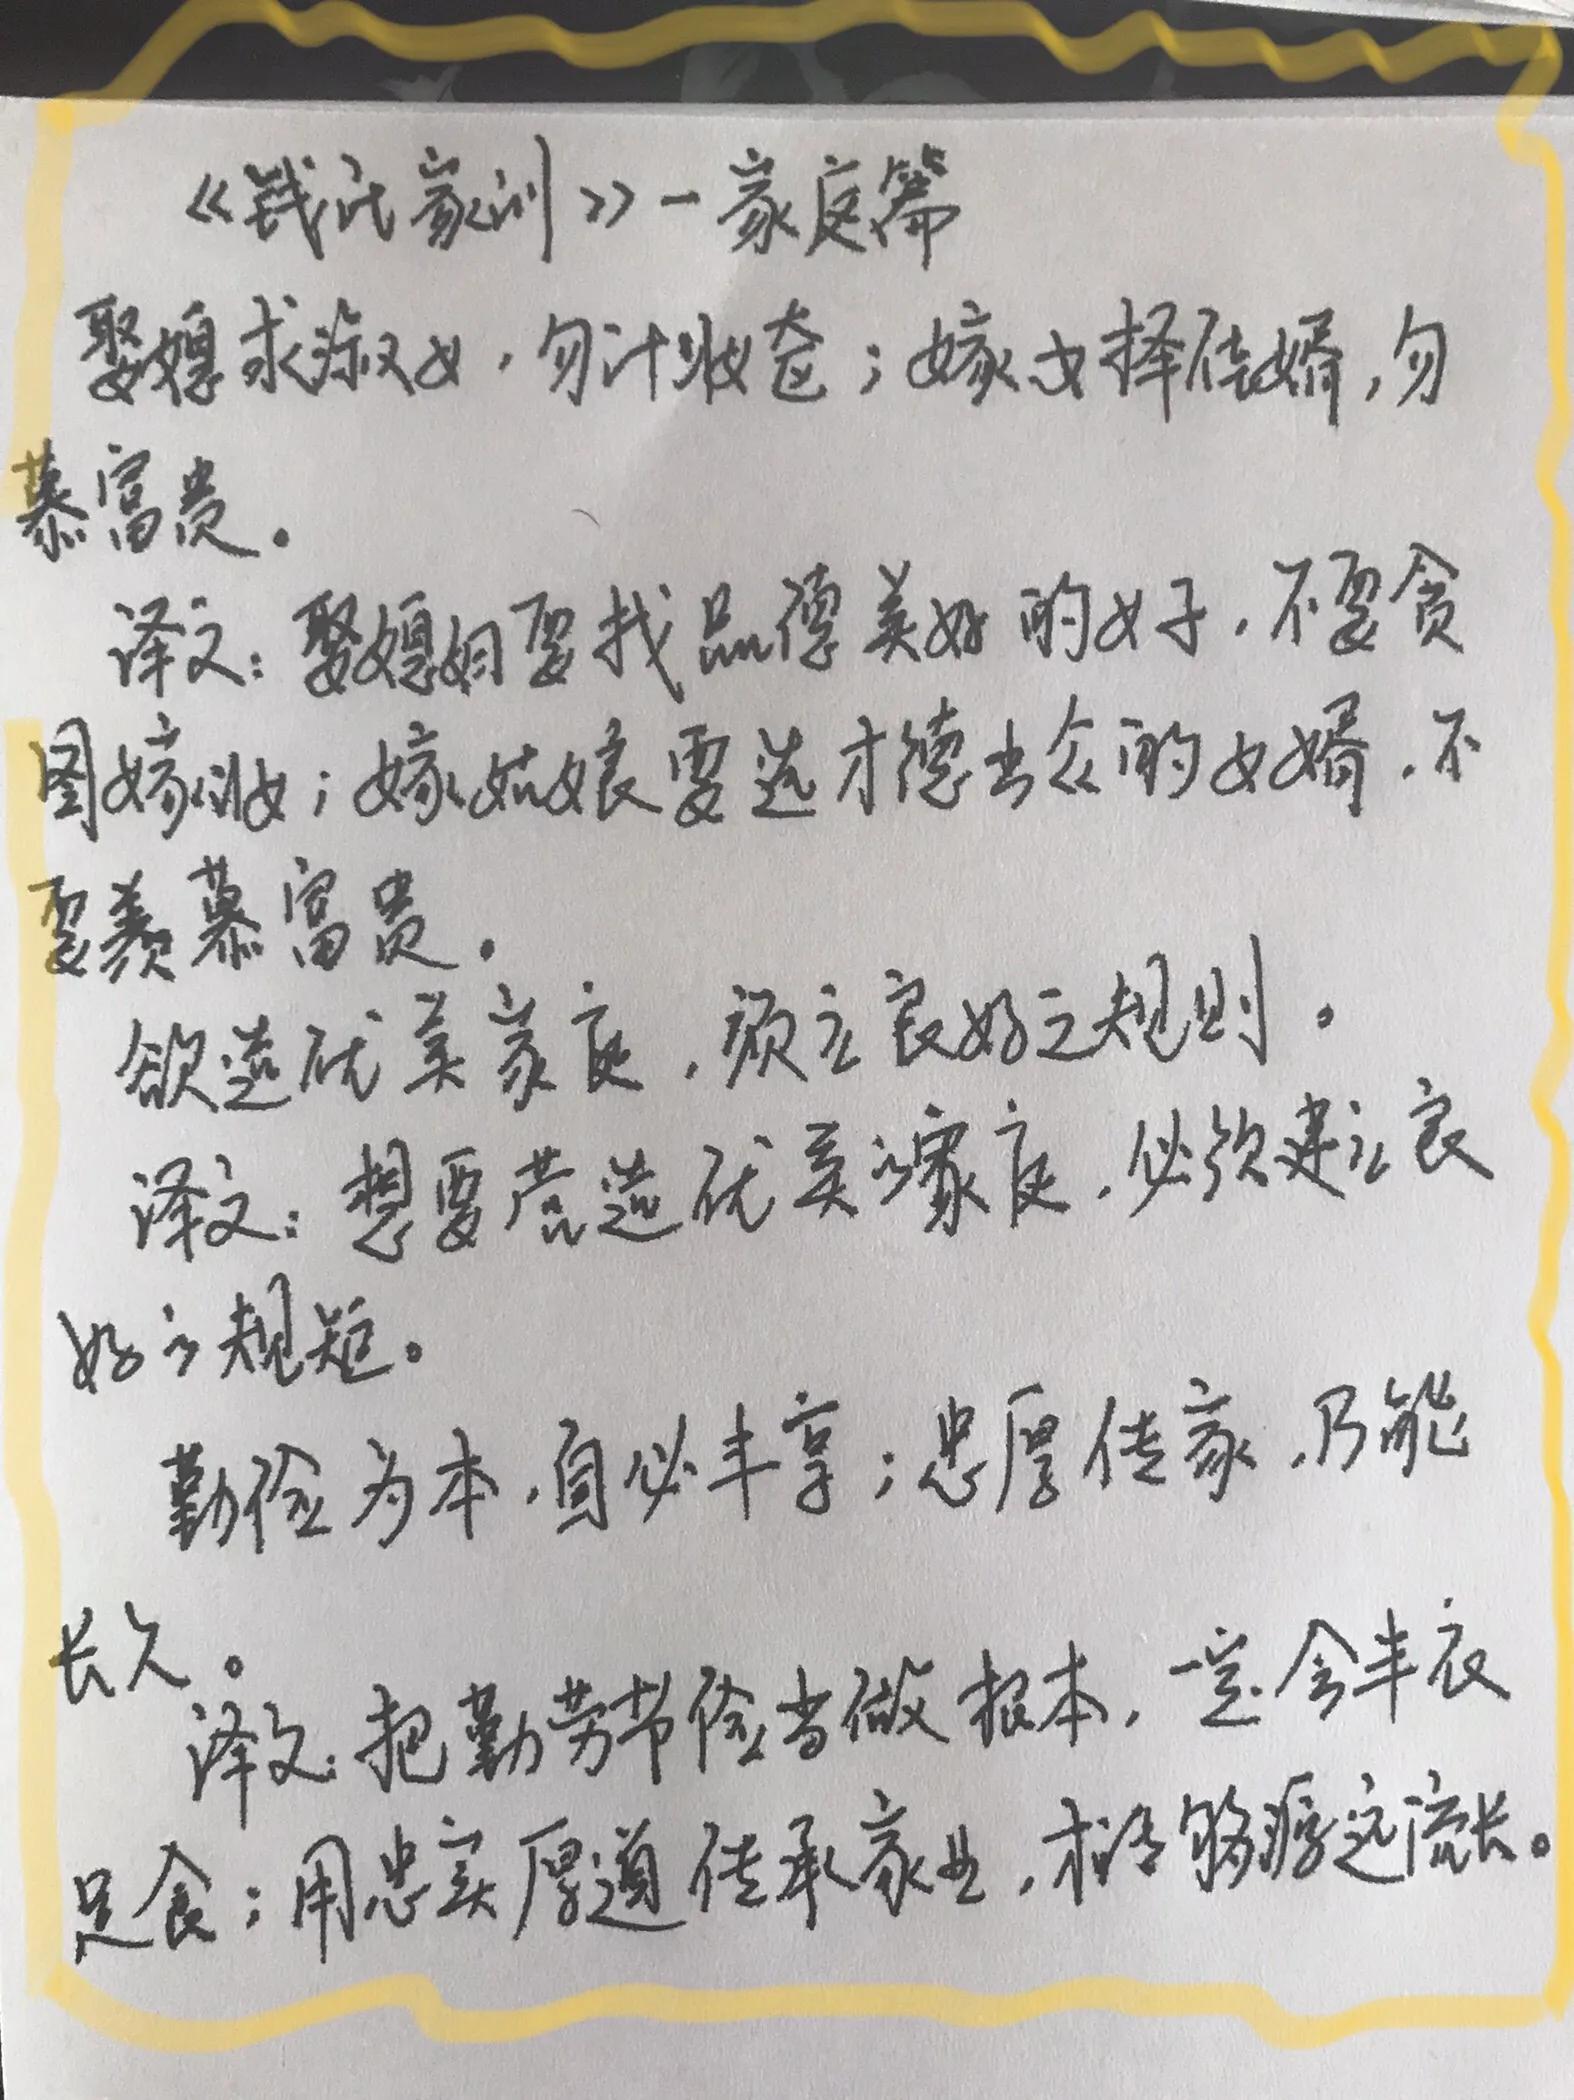 《钱氏家训》一家庭篇
娶媳求淑女，勿计妆奁；嫁女择佳婿，勿
慕富贵。
译文：娶媳妇要找品德美好的女子，不要贪
图嫁妆；嫁姑娘要选才德出众的女婿，不
要羡慕富贵。
欲造优美家庭，须立良好之规则。
译文：想要营造优美的家庭，必须建立良
好的规矩。
勤俭为本，自必丰享；忠厚传家，乃能
长久。
译文：把勤劳节俭当做根本，一定会丰衣
足食；用忠实厚道传承家业，才能够源远流长。